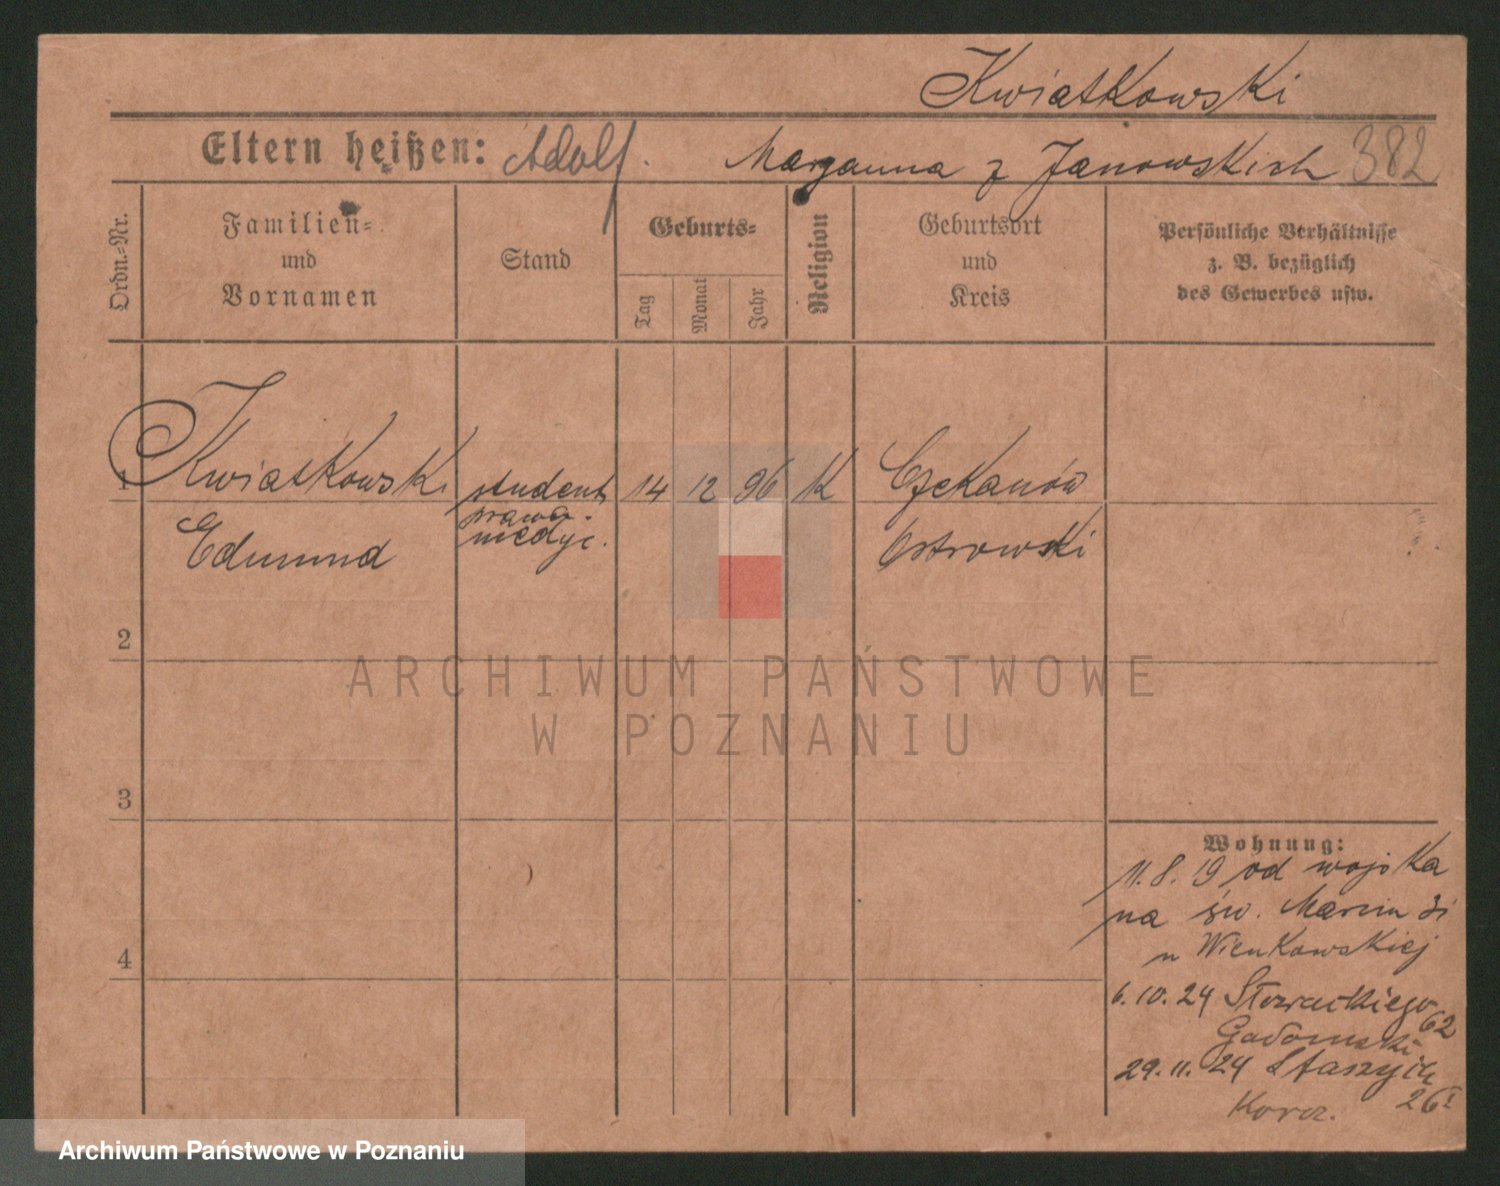 Kwiatkowski
Eltern heißen: Adolf. Maryanna z Janowskich 382
Ordn.-Nr.
Familien- und Vornamen
Stand
Geburts-
Tag
Monat
Jahr
Religion
Geburtsort und Kreis
Persönliche Verhältnisse
z. B. bezüglich
des Gewerbes usw.
1 Kwiatkowski student 14 12 96 K Czekanów
prawa.
Edmund medyc. Ostrowski
2
3
4
Wohnung:
11.8.19 od wojska
na św. Marcin 31
u Wienkowskiej
6.10.24 Słowackiego
62
Gadomski
29.11.24 Staszyca
26 I
ARCHIWUM PAŃSTWOWE
W POZNANIU
Archiwum Państwowe w Poznaniu